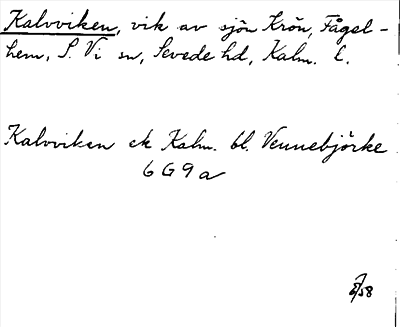 Kalvviken, vik av sjön Krön, Fågel-
hem, S. Vi sn, Sevede hd, Kalm. l.
Kalvviken ek Kalm. bl. Vennebjörke
6 G 9 a